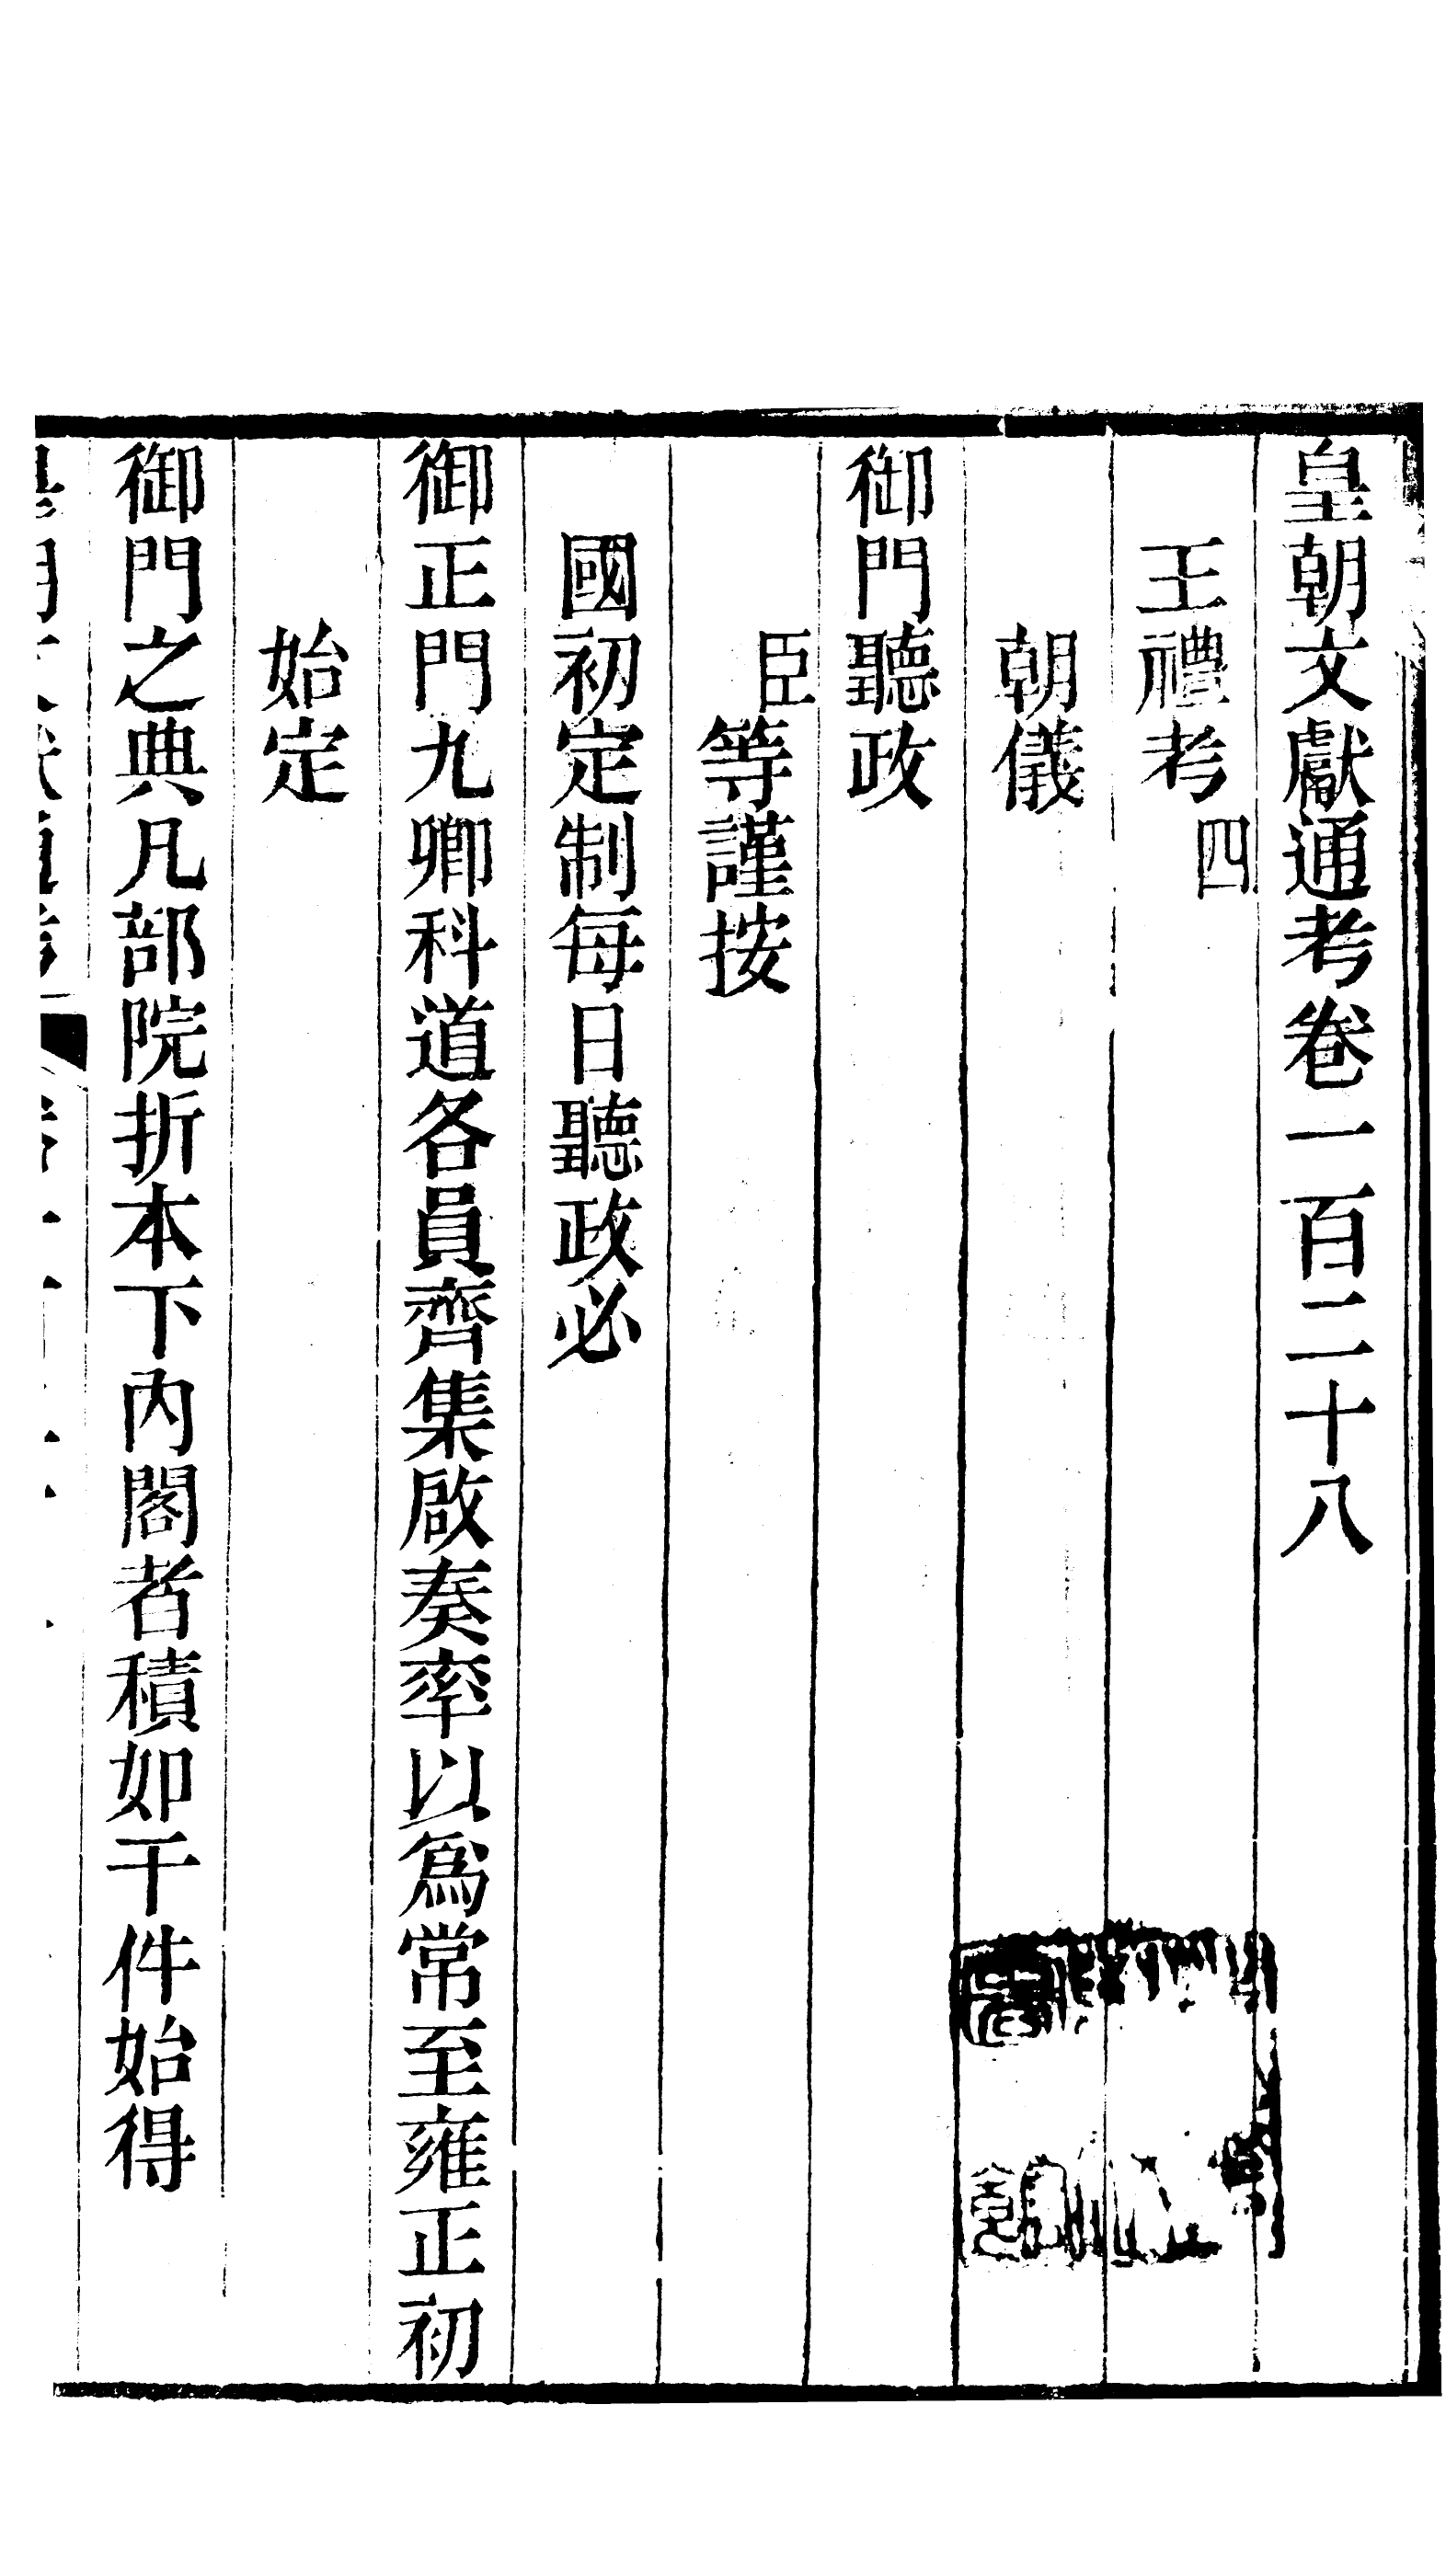 皇朝文獻通考卷一百二十八
王禮考四
朝儀
御門聽政
臣等謹按
國初定制每日聽政必
御正門九卿科道各員齊集啟奏率以爲常至雍正初
始定
御門之典凡部院折本下內閣者積如干件始得